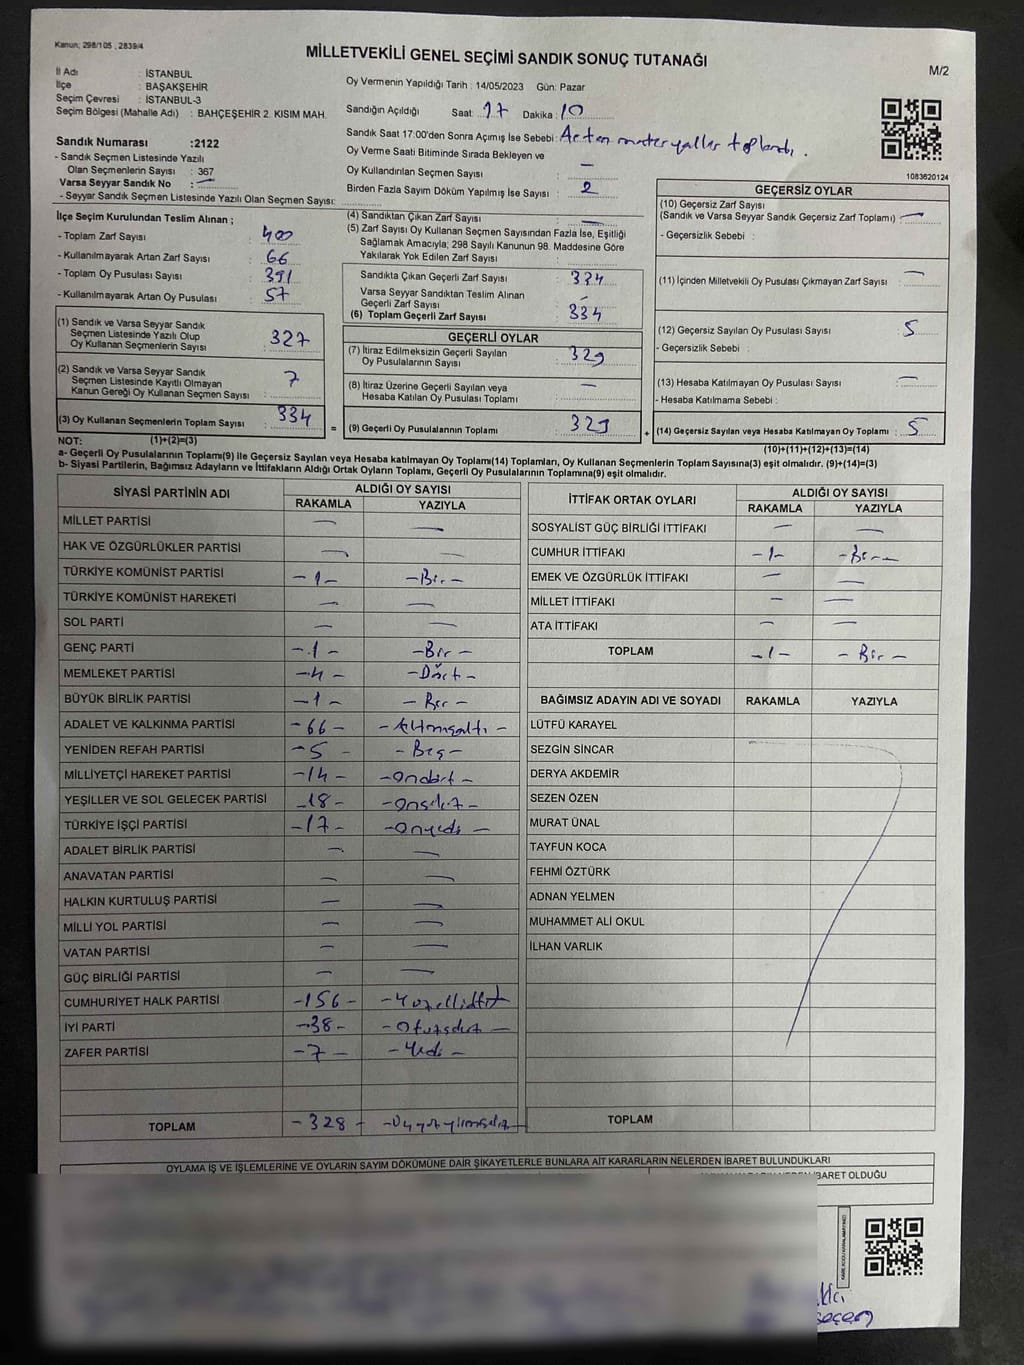 Kanun; 298/105 , 2839/4
MİLLETVEKİLİ GENEL SEÇİMİ SANDIK SONUÇ TUTANAĞI
M/2
İl Adı : İSTANBUL
İlçe : BAŞAKŞEHİR
Seçim Çevresi : İSTANBUL-3
Seçim Bölgesi (Mahalle Adı) : BAHÇEŞEHİR 2. KISIM MAH.
Oy Vermenin Yapıldığı Tarih : 14/05/2023 Gün: Pazar
Sandığın Açıldığı Saat: 17 Dakika : 10
Sandık Saat 17:00'den Sonra Açımış İse Sebebi : Artan materyaller toplandı.
Oy Verme Saati Bitiminde Sırada Bekleyen ve
Oy Kullandırılan Seçmen Sayısı : —
Birden Fazla Sayım Döküm Yapılmış İse Sayısı : 2
1083620124
Sandık Numarası :2122
- Sandık Seçmen Listesinde Yazılı
Olan Seçmenlerin Sayısı : 367
Varsa Seyyar Sandık No : —
- Seyyar Sandık Seçmen Listesinde Yazılı Olan Seçmen Sayısı:
İlçe Seçim Kurulundan Teslim Alınan ;
- Toplam Zarf Sayısı : 400
- Kullanılmayarak Artan Zarf Sayısı : 66
- Toplam Oy Pusulası Sayısı : 391
- Kullanılmayarak Artan Oy Pusulası : 57
(1) Sandık ve Varsa Seyyar Sandık
Seçmen Listesinde Yazılı Olup
Oy Kullanan Seçmenlerin Sayısı : 327
(2) Sandık ve Varsa Seyyar Sandık
Seçmen Listesinde Kayıtlı Olmayan
Kanun Gereği Oy Kullanan Seçmen Sayısı : 7
(3) Oy Kullanan Seçmenlerin Toplam Sayısı : 334
(4) Sandıktan Çıkan Zarf Sayısı : —
(5) Zarf Sayısı Oy Kullanan Seçmen Sayısından Fazla İse, Eşitliği
Sağlamak Amacıyla; 298 Sayılı Kanunun 98. Maddesine Göre
Yakılarak Yok Edilen Zarf Sayısı :
Sandıkta Çıkan Geçerli Zarf Sayısı : 334
Varsa Seyyar Sandıktan Teslim Alınan
Geçerli Zarf Sayısı : —
(6) Toplam Geçerli Zarf Sayısı : 334
GEÇERLİ OYLAR
(7) İtiraz Edilmeksizin Geçerli Sayılan
Oy Pusulalarının Sayısı : 329
(8) İtiraz Üzerine Geçerli Sayılan veya
Hesaba Katılan Oy Pusulası Toplamı : —
= (9) Geçerli Oy Pusulalarının Toplamı : 329
GEÇERSİZ OYLAR
(10) Geçersiz Zarf Sayısı
(Sandık ve Varsa Seyyar Sandık Geçersiz Zarf Toplamı) : —
- Geçersizlik Sebebi :
(11) İçinden Milletvekili Oy Pusulası Çıkmayan Zarf Sayısı : —
(12) Geçersiz Sayılan Oy Pusulası Sayısı : 5
- Geçersizlik Sebebi :
(13) Hesaba Katılmayan Oy Pusulası Sayısı : —
- Hesaba Katılmama Sebebi :
+ (14) Geçersiz Sayılan veya Hesaba Katılmayan Oy Toplamı : 5
NOT: (1)+(2)=(3) (10)+(11)+(12)+(13)=(14)
a- Geçerli Oy Pusulalarının Toplamı(9) ile Geçersiz Sayılan veya Hesaba katılmayan Oy Toplamı(14) Toplamları, Oy Kullanan Seçmenlerin Toplam Sayısına(3) eşit olmalıdır. (9)+(14)=(3)
b- Siyasi Partilerin, Bağımsız Adayların ve İttifakların Aldığı Ortak Oyların Toplamı, Geçerli Oy Pusulalarının Toplamına(9) eşit olmalıdır.
SİYASİ PARTİNİN ADI ALDIĞI OY SAYISI
RAKAMLA YAZIYLA
MİLLET PARTİSİ — —
HAK VE ÖZGÜRLÜKLER PARTİSİ — —
TÜRKİYE KOMÜNİST PARTİSİ -1- -Bir-
TÜRKİYE KOMÜNİST HAREKETİ — —
SOL PARTİ — —
GENÇ PARTİ -1- -Bir-
MEMLEKET PARTİSİ -4- -Dört-
BÜYÜK BİRLİK PARTİSİ -1- -Bir-
ADALET VE KALKINMA PARTİSİ -66- -Altmışaltı-
YENİDEN REFAH PARTİSİ -5- -Beş-
MİLLİYETÇİ HAREKET PARTİSİ -14- -Ondört-
YEŞİLLER VE SOL GELECEK PARTİSİ -18- -Onsekiz-
TÜRKİYE İŞÇİ PARTİSİ -17- -Onyedi-
ADALET BİRLİK PARTİSİ — —
ANAVATAN PARTİSİ — —
HALKIN KURTULUŞ PARTİSİ — —
MİLLİ YOL PARTİSİ — —
VATAN PARTİSİ — —
GÜÇ BİRLİĞİ PARTİSİ — —
CUMHURİYET HALK PARTİSİ -156- -Yüzellialtı
İYİ PARTİ -38- -Otuzsekiz-
ZAFER PARTİSİ -7- -Yedi-
TOPLAM -328- -Üçyüzyirmisekiz-
İTTİFAK ORTAK OYLARI ALDIĞI OY SAYISI
RAKAMLA YAZIYLA
SOSYALİST GÜÇ BİRLİĞİ İTTİFAKI — —
CUMHUR İTTİFAKI -1- -Bir-
EMEK VE ÖZGÜRLÜK İTTİFAKI — —
MİLLET İTTİFAKI — —
ATA İTTİFAKI — —
TOPLAM -1- -Bir-
BAĞIMSIZ ADAYIN ADI VE SOYADI RAKAMLA YAZIYLA
LÜTFÜ KARAYEL
SEZGİN SİNCAR
DERYA AKDEMİR
SEZEN ÖZEN
MURAT ÜNAL
TAYFUN KOCA
FEHMİ ÖZTÜRK
ADNAN YELMEN
MUHAMMET ALİ OKUL
İLHAN VARLIK
TOPLAM
OYLAMA İŞ VE İŞLEMLERİNE VE OYLARIN SAYIM DÖKÜMÜNE DAİR ŞİKAYETLERLE BUNLARA AİT KARARLARIN NELERDEN İBARET BULUNDUKLARI
BARET OLDUĞU